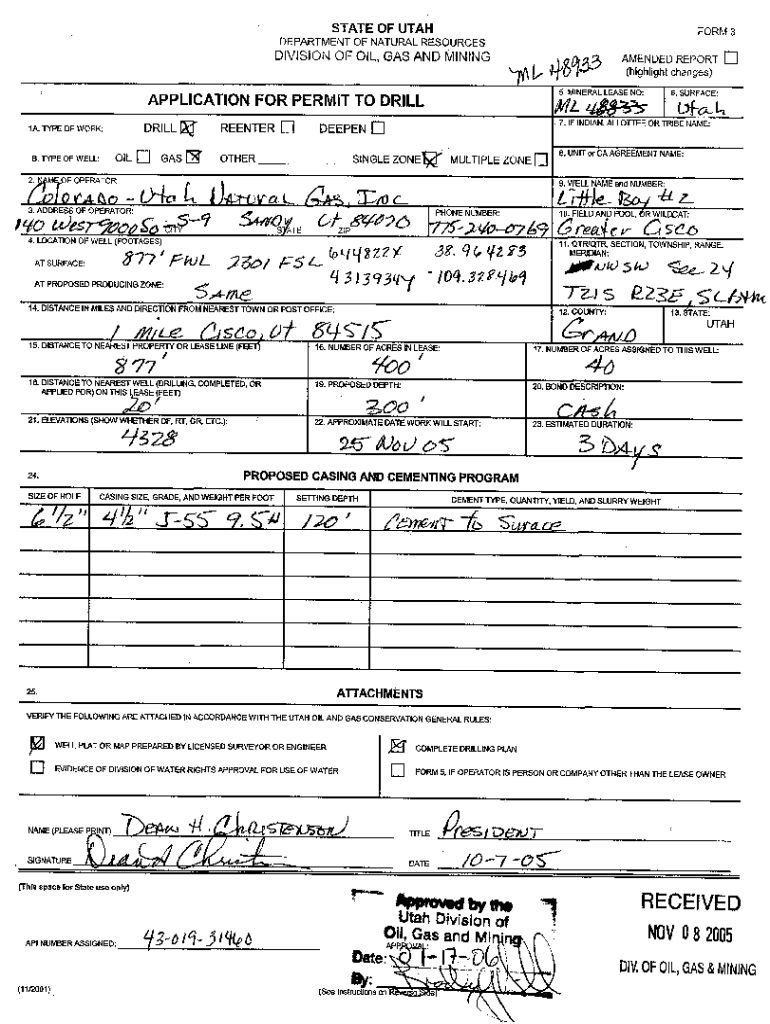 STATE OF UTAH
DEPARTMENT OF NATURAL RESOURCES
DIVISION OF OIL, GAS AND MINING
FORM 3
ML 48933
AMENDED REPORT
(highlight changes)
APPLICATION FOR PERMIT TO DRILL
5. MINERAL LEASE NO:
ML 48833
6. SURFACE:
Utah
1A. TYPE OF WORK: DRILL REENTER DEEPEN
7. IF INDIAN, ALLOTTEE OR TRIBE NAME:
B. TYPE OF WELL: OIL GAS OTHER SINGLE ZONE MULTIPLE ZONE
8. UNIT or CA AGREEMENT NAME:
2. NAME OF OPERATOR:
Colorado - Utah Natural Gas, Inc
9. WELL NAME and NUMBER:
Little Bay # 2
3. ADDRESS OF OPERATOR:
140 West 9000 So CITY S-9 Sandy STATE Ut ZIP 84070
PHONE NUMBER:
775-240-0769
10. FIELD AND POOL, OR WILDCAT:
Greater Cisco
4. LOCATION OF WELL (FOOTAGES)
AT SURFACE: 877' FWL 2301 FSL 644822X 38.964283
4313934Y -109.328469
AT PROPOSED PRODUCING ZONE: Same
11. QTR/QTR, SECTION, TOWNSHIP, RANGE, MERIDIAN:
NWSW Sec 24
T21S R23E, SLB&M
14. DISTANCE IN MILES AND DIRECTION FROM NEAREST TOWN OR POST OFFICE:
1 Mile Cisco, Ut 84515
12. COUNTY:
Grand
13. STATE:
UTAH
15. DISTANCE TO NEAREST PROPERTY OR LEASE LINE (FEET)
877'
16. NUMBER OF ACRES IN LEASE:
400'
17. NUMBER OF ACRES ASSIGNED TO THIS WELL:
40
18. DISTANCE TO NEAREST WELL (DRILLING, COMPLETED, OR APPLIED FOR) ON THIS LEASE (FEET)
20'
19. PROPOSED DEPTH:
300'
20. BOND DESCRIPTION:
Cash
21. ELEVATIONS (SHOW WHETHER DF, RT, GR, ETC.):
4328
22. APPROXIMATE DATE WORK WILL START:
25 Nov 05
23. ESTIMATED DURATION:
3 Days
24. PROPOSED CASING AND CEMENTING PROGRAM
SIZE OF HOLE CASING SIZE, GRADE, AND WEIGHT PER FOOT SETTING DEPTH CEMENT TYPE, QUANTITY, YIELD, AND SLURRY WEIGHT
6 1/2" 4 1/2" J-55 9.5# 120' Cement to Surace
25. ATTACHMENTS
VERIFY THE FOLLOWING ARE ATTACHED IN ACCORDANCE WITH THE UTAH OIL AND GAS CONSERVATION GENERAL RULES:
WELL PLAT OR MAP PREPARED BY LICENSED SURVEYOR OR ENGINEER
COMPLETE DRILLING PLAN
EVIDENCE OF DIVISION OF WATER RIGHTS APPROVAL FOR USE OF WATER
FORM 5, IF OPERATOR IS PERSON OR COMPANY OTHER THAN THE LEASE OWNER
NAME (PLEASE PRINT) Dean H. Christenson TITLE President
SIGNATURE DATE 10-7-05
(This space for State use only)
Approved by the
Utah Division of
Oil, Gas and Mining
RECEIVED
NOV 08 2005
DIV. OF OIL, GAS & MINING
API NUMBER ASSIGNED: 43-019-31460
APPROVAL:
Date: 01-17-06
By:
(11/2001)
(See Instructions on Reverse Side)